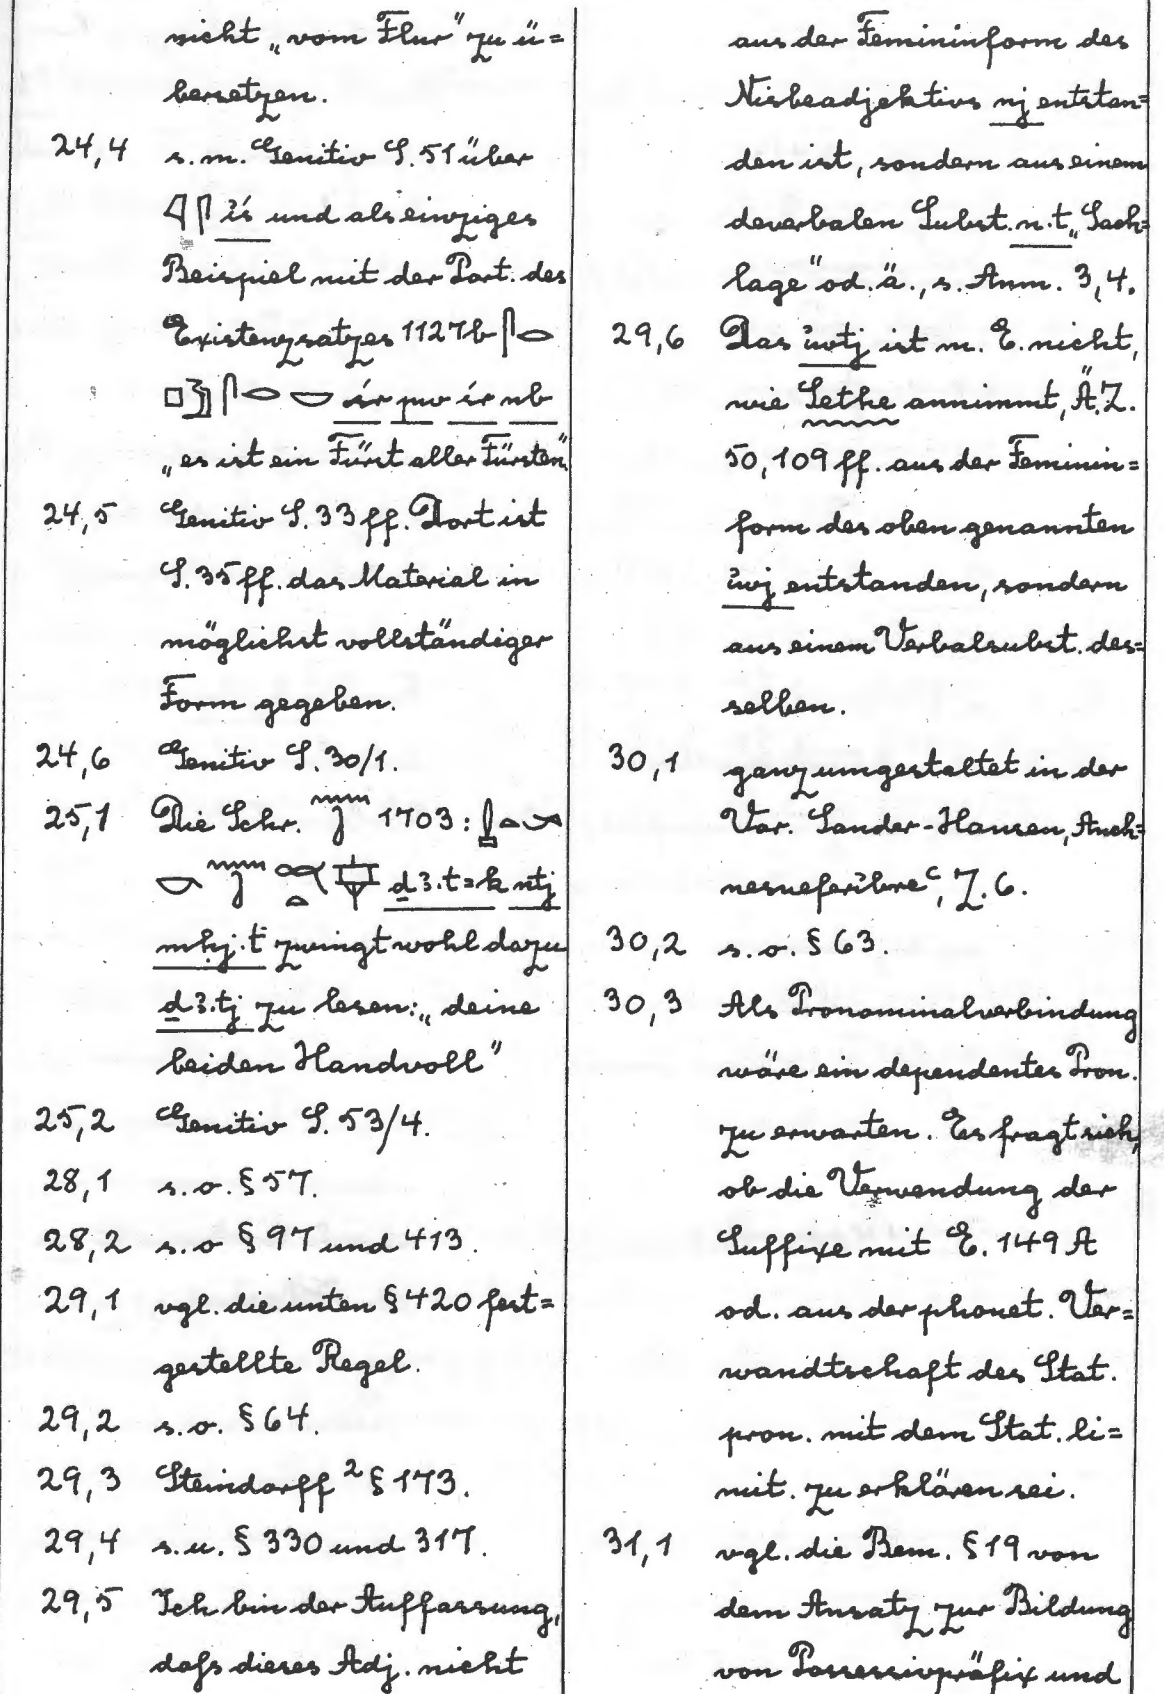 nicht „vom Flur" zu ü=
bersetzen.
24,4 s. m. Genitiv S. 51 über
is und als einziges
Beispiel mit der Part. des
Existenzsatzes 1127b
śr pw śr nb
„es ist ein Fürst aller Fürsten"
24,5 Genitiv S. 33 ff. Dort ist
S. 35 ff. das Material in
möglichst vollständiger
Form gegeben.
24,6 Genitiv S. 30/1.
25,1 Die Schr. 1703:
ḏꜣ.t=k ntj
mḥj.t zwingt wohl dazu
ḏꜣ.tj zu lesen: „deine
beiden Handvoll"
25,2 Genitiv S. 53/4.
28,1 s. o. § 57.
28,2 s. o § 97 und 413.
29,1 vgl. die unten § 420 fest=
gestellte Regel.
29,2 s. o. § 64.
29,3 Steindorff ² § 173.
29,4 s. u. § 330 und 317.
29,5 Ich bin der Auffassung,
dafs dieses Adj. nicht
aus der Femininform des
Nisbeadjektivs nj entstan=
den ist, sondern aus einem
deverbalen Subst. n.t „Sach=
lage" od. ä., s. Anm. 3,4.
29,6 Das iwtj ist m. E. nicht,
wie Sethe annimmt, Ä.Z.
50, 109 ff. aus der Feminin=
form des oben genannten
iwj entstanden, sondern
aus einem Verbalsubst. des=
selben.
30,1 ganz umgestaltet in der
Var. Sander-Hansen, Anch=
nesneferibreᶜ, Z. 6.
30,2 s. o. § 63.
30,3 Als Pronominalverbindung
wäre ein dependentes Pron.
zu erwarten. Es fragt sich,
ob die Verwendung der
Suffixe mit E. 149 A
od. aus der phonet. Ver=
wandtschaft des Stat.
pron. mit dem Stat. li=
mit. zu erklären sei.
31,1 vgl. die Bem. § 19 von
dem Ansatz zur Bildung
von Possessivpräfix und